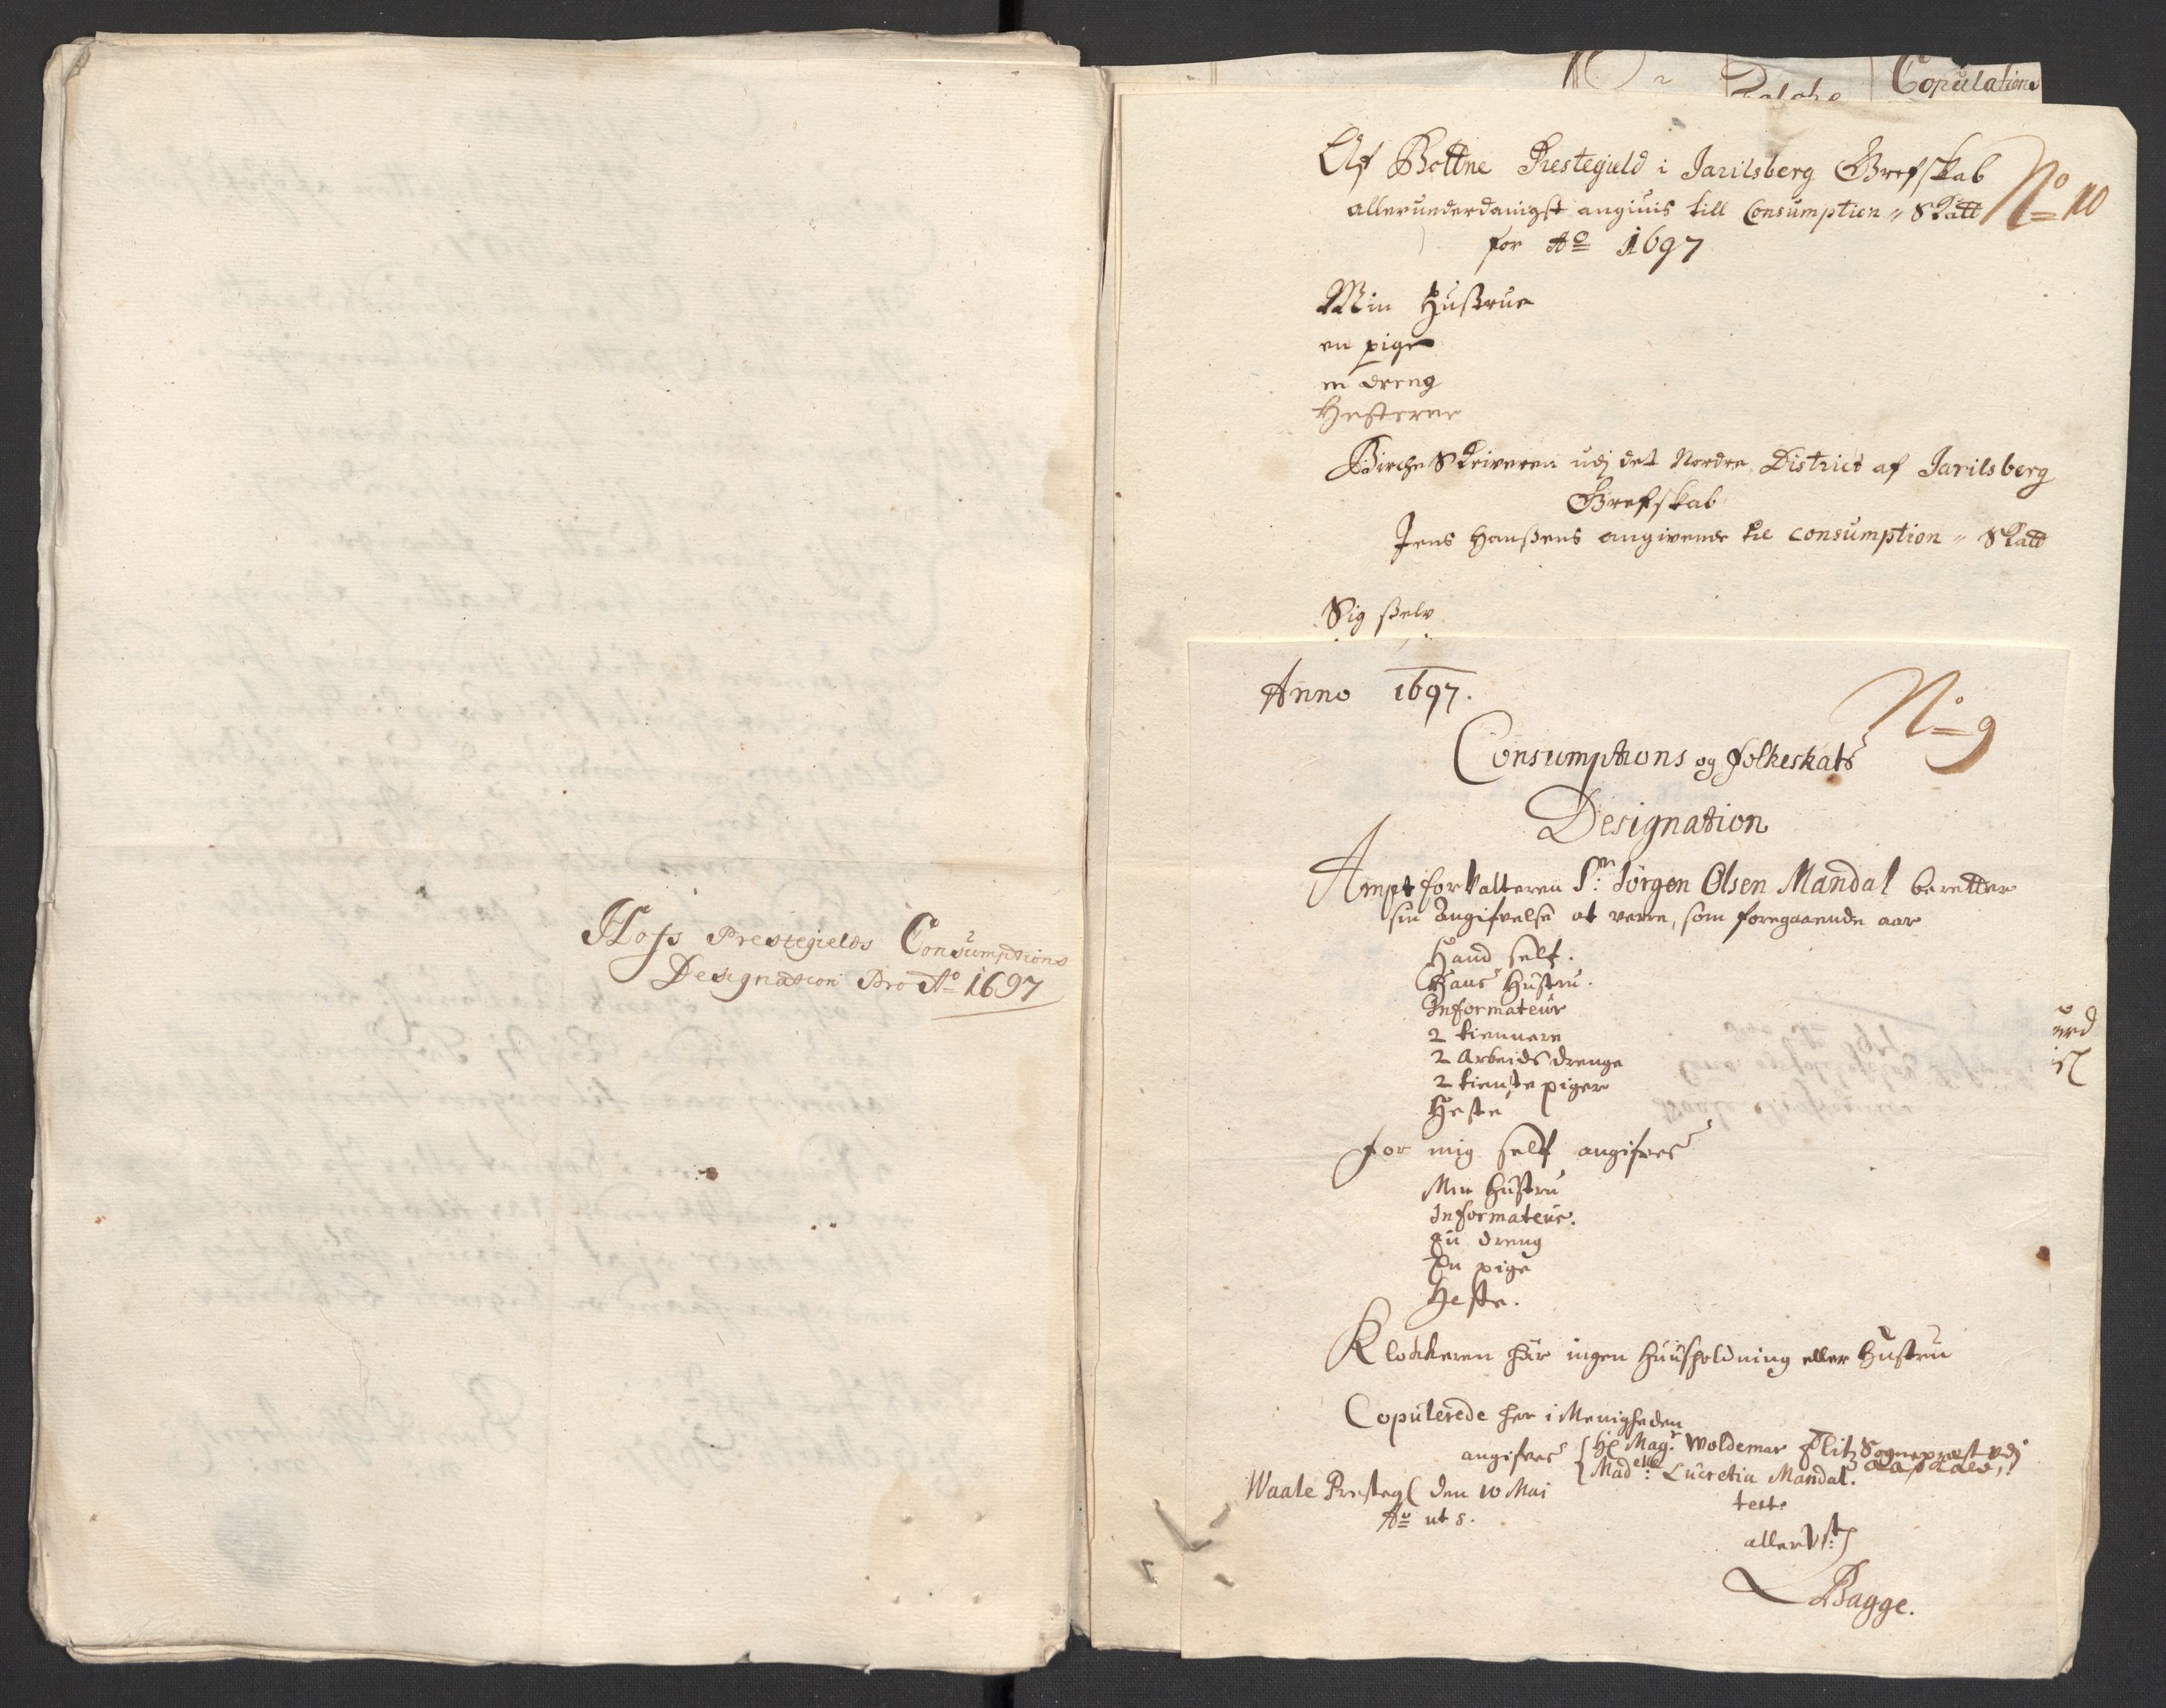 Hoffs Prestegields Consumptions
Designation Pro Ao 1697
Copulatione
Af Bottne Prestegield i Jarilsberg Grefskab
No 10
allerunderdanigst angivis till Consumption Skatt
for Ao 1697
Min Hustrue
en pige
en dreng
Hesterne
Birche Skriveren udj det Nordre District af Jarilsberg
Grefskab
Jens Hanßens angivende til Consumption Skatt
Sig ßelv
Anno 1697.
No 9
Consumptions og folkeskats
Designation
Amptforvalteren Sr: Jörgen Olsen Mandal beretter
sin Angifvelse at verre, som foregaaende aar
Hand self.
Hans Hustru.
Informateur
2 tiennere
2 Arbeids drenge
2 tienste piger
Heste
for mig self angifves
Min Hustru
Informateur.
En dreng
En pige
Heste.
Klockeren har ingen Huusholdning eller Hustru
Copulerede her i Menigheden
angifves Hr Magr: Woldemar Flitz Sogneprest udj
Madelle: Lucretia Mandal.
Waale Presteg den 10 Mai
Ao ut s.
test.
allerust:
Bagge.